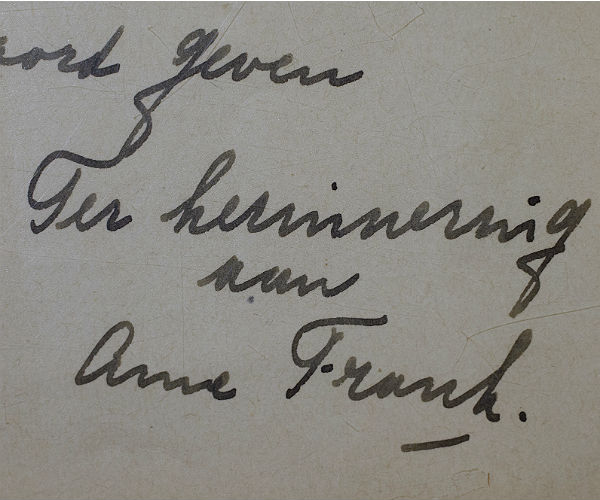 oord geven
Ter herinnering
aan
Anne Frank.